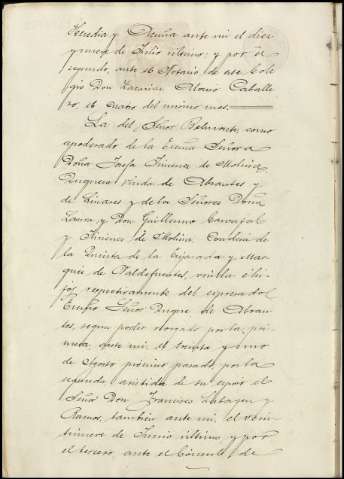 Heredia y Acuña ante mi el diez
y nueve de Julio último; y por el
segundo, ante el Notario de este Cole-
gio Don Zacarías Alonso Caballe-
ro, el cuatro del mismo mes.
La del Señor Betancourt, como
apoderado de la Excma Señora
Doña Josefa Jimenez de Molina
Duquesa viuda de Abrantes y
de Linares y de los Señores Doña
Laura y Don Guillermo Carvajal
y Jimenez de Molina, Condesa de
la Quinta de la Enjarada y Mar-
qués de Valdefuentes, viuda é hi-
jos respectivamente del expresado
Excmo Señor Duque de Abran-
tes, segun poder otorgado por la pri-
mera ante mi, el treinta y uno
de Agosto próximo pasado, por la
segunda asistida de su esposo el
Señor Don Francisco Zabalburu y
Ramos, tambien ante mi, el vein-
tinueve de Junio último, y por
el tercero, ante el Cónsul de